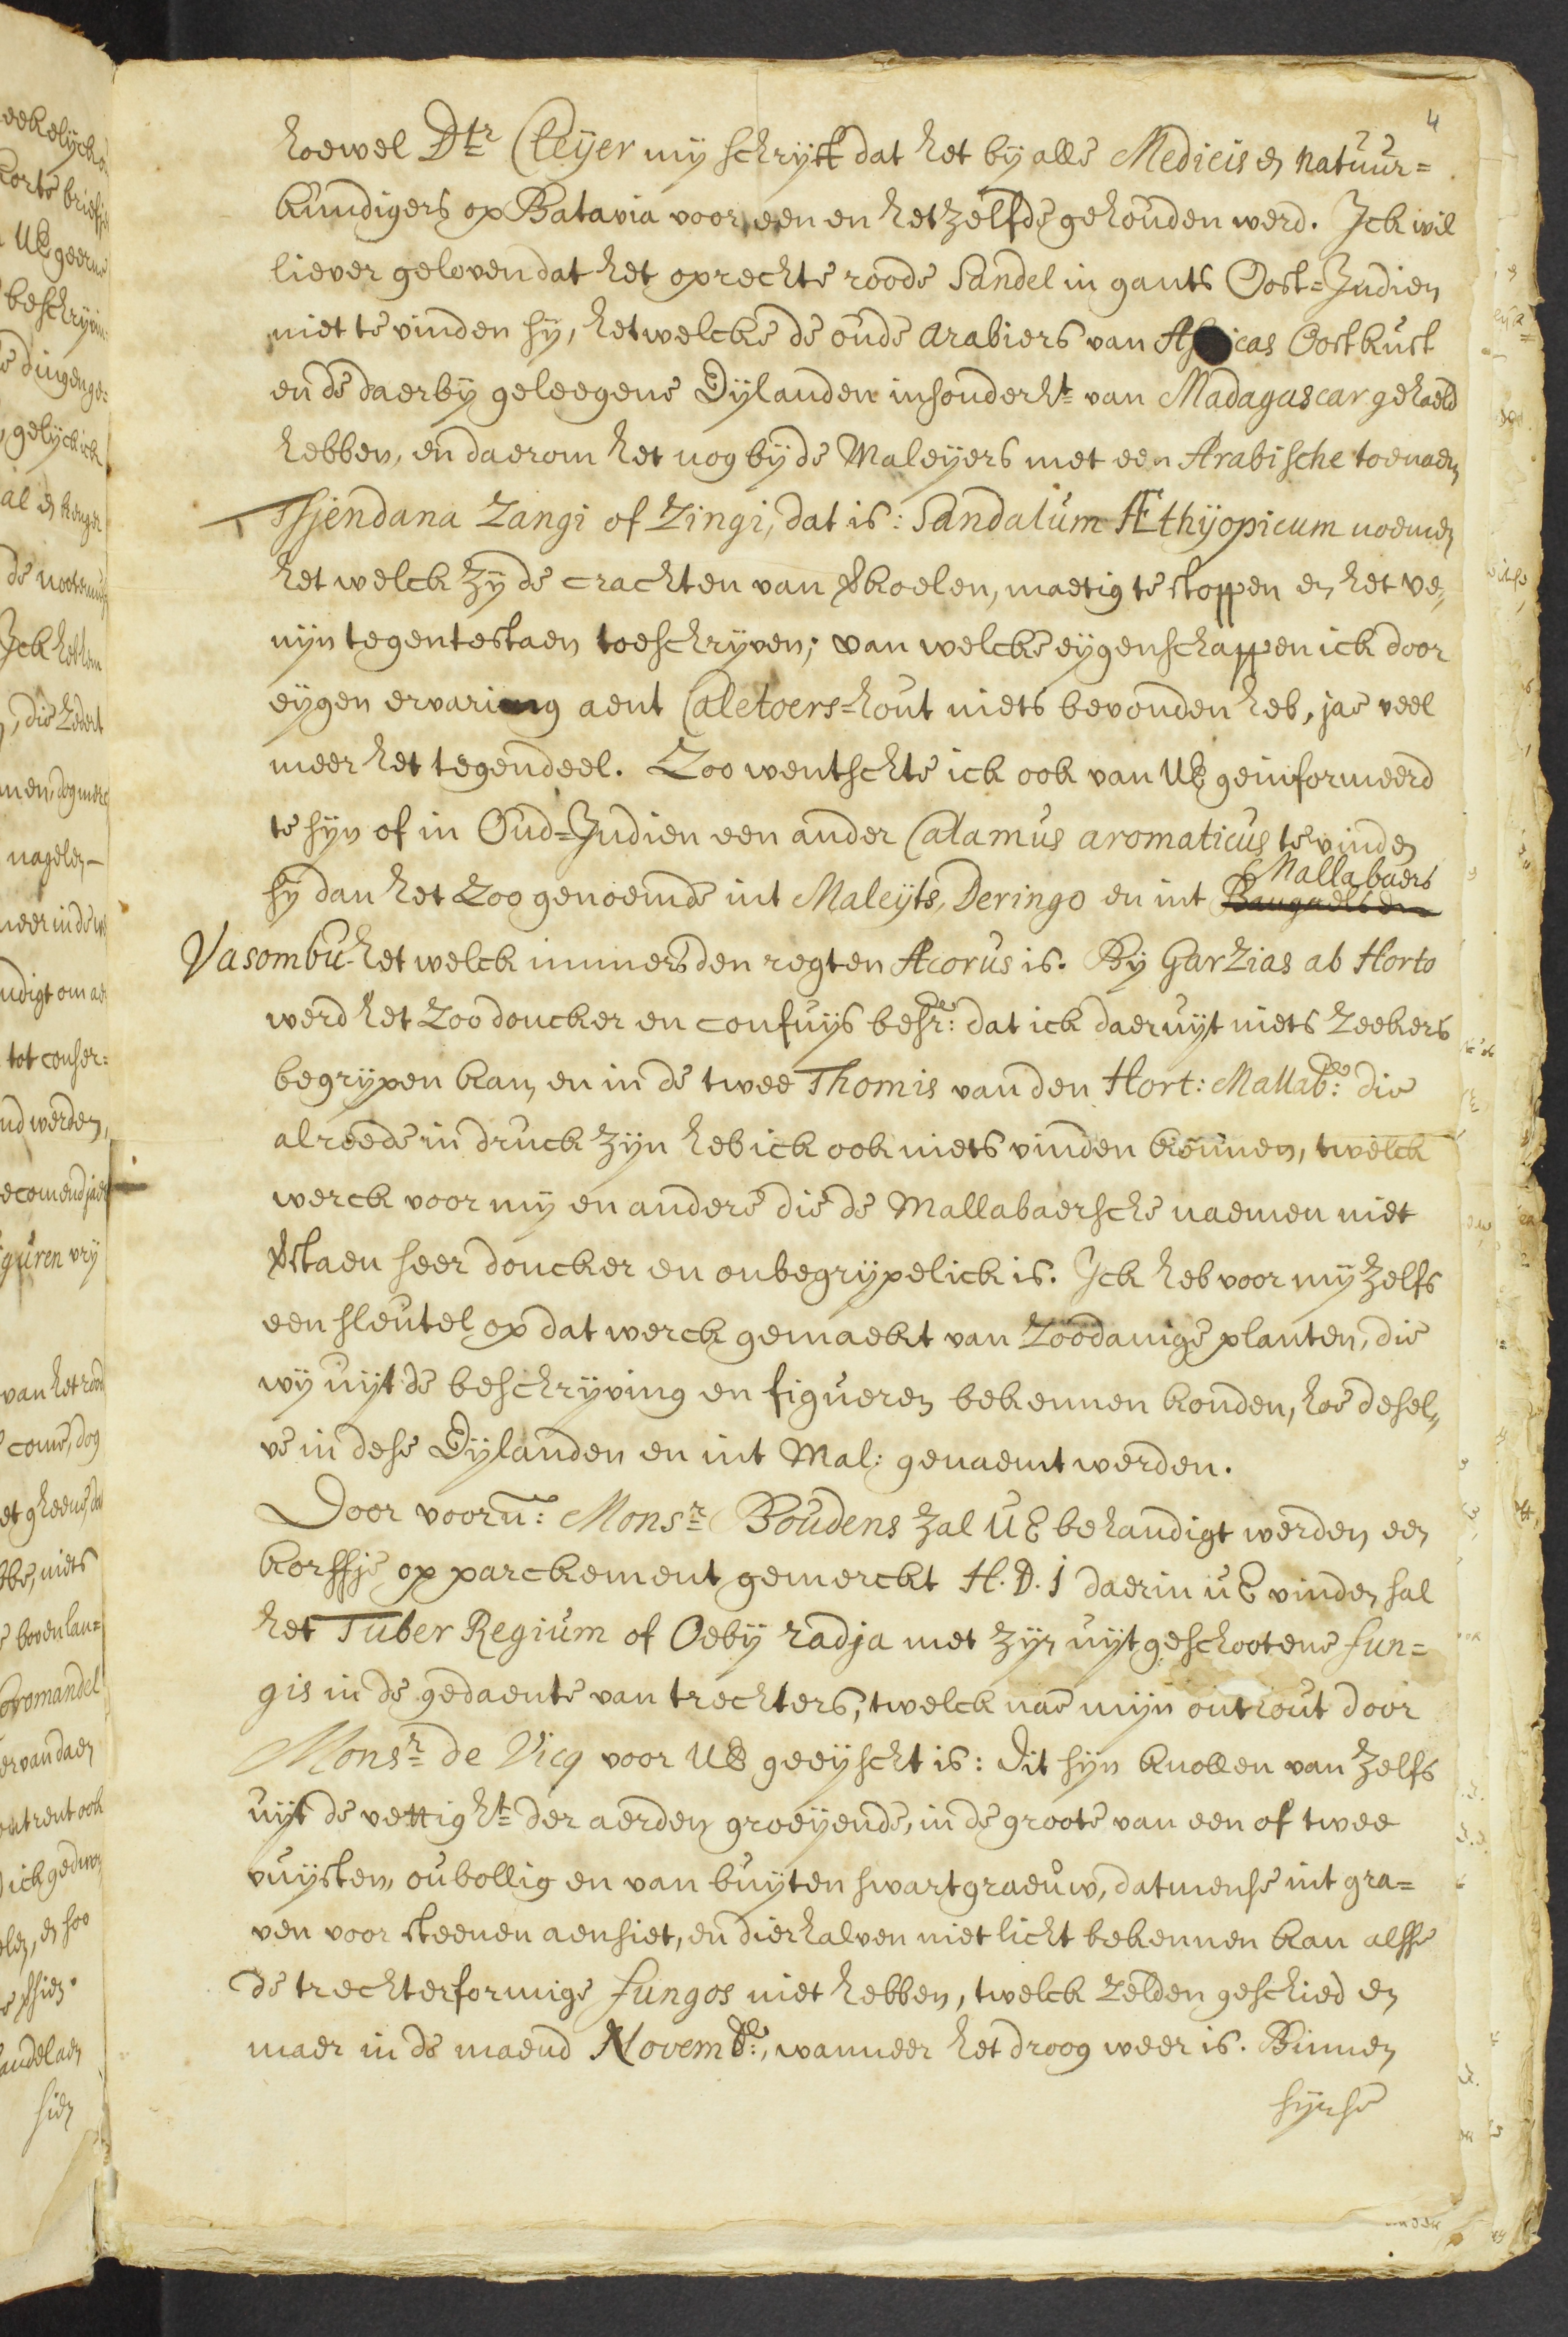 4
hoewel Dtr Cleÿer mÿ schrÿft dat het bÿ alle Medicis en natuur=
kundigers op Batavia voor een en het zelfde gehouden werd. Ick wil
liever geloven dat het oprechte roode Sandel in gants Oost=Indien
niet te vinden sÿ, het welcke de oude Arabiers van Af icas Oostkust
en de daerbÿ geleegene Eÿlanden insonderht van Madagascar gehaeld
hebben, en daerom het nog bÿ de Maleÿers met een Arabische toenaem
Tsjendana Zangi of Zingi, dat is: Sandalum Æthÿopicum noemen
het welck zÿ de crachten van vkoelen, maetig te stoppen en het ve„
nÿn tegentestaen toeschrÿven; van welcke eÿgenschappen ick door
eÿgen ervaring aent Caletoers=hout niets bevonden heb, jae veel
meer het tegendeel. Zoo wentschte ick ook van UE geinformeerd
te sÿn of in Oud=Indien een ander Calamus aromaticus te vinden
Mallabaers
sÿ dan het zoo genoemde int Maleÿts, Deringo en int
Vasombu het welck immers den regten Acorus is. Bÿ Garzias ab Horto
werd het zoo doncker en confuÿs besr: dat ick daeruÿt niets zeekers
begrÿpen kan, en in de twee Thomis van den Hort: Mallab: die
alreede in druck zÿn heb ick ook niets vinden kennen, twelck
werck voor mÿ en andere die de Mallabaersche naemen niet
vstaen seer doncker en onbegrÿpelick is. Ick heb voor mÿ zelfs
een sleutel op dat werck gemaekt van zoodanige planten, die
wÿ uÿt de beschrÿving en figueren bekennen konden, hoe desel„
ve in dese Eÿlanden en int Mal: genaemt werden.
Door voorn: Monsr Boudens zal UE behandigt werden een
korfsje op parckement gemerckt H. D. 1 daerin UE vinden sal
het Tuber Regium of Oebÿ radja met zÿn uÿtgeschootene fun=
gis in de gedaente van trechters, twelck nae mÿn onthout door
Monsr de Vicq voor UE geeÿscht is: Dit sÿn knollen van zelfs
uÿt de vettight der aerden groeÿende, in de groote van een of twee
vuÿsten, oubollig en van buÿten swartgraeuw, datmense int gra=
ven voor steenen aensiet, en dierhalven niet licht bekennen kan alsse
de trechterformige fungos niet hebben, twelck zelden geschied en
maer in de maend Novemb:, wanneer het droog weer is. Binnen
sÿnse